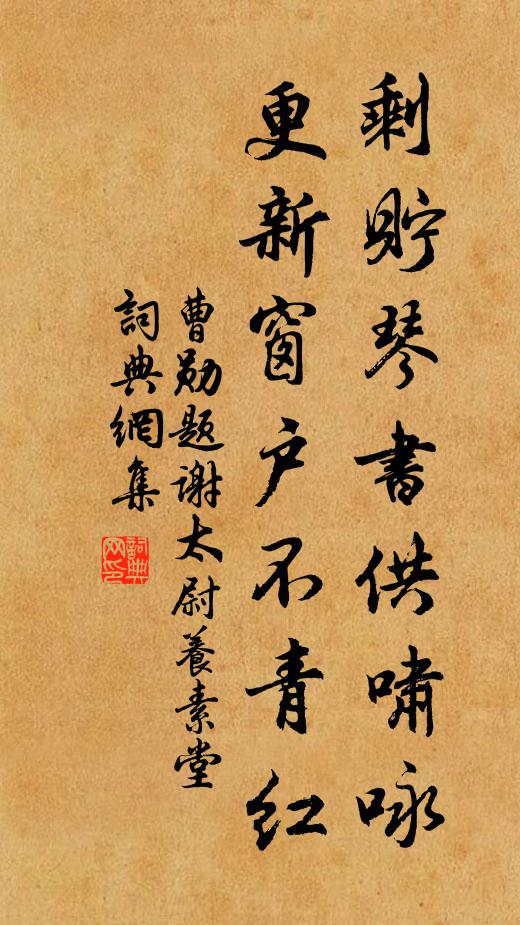 剩貯琴書供嘯咏
更新窗户不青红
曹勛題謝太尉養素堂
詞典網集
詞典
网印